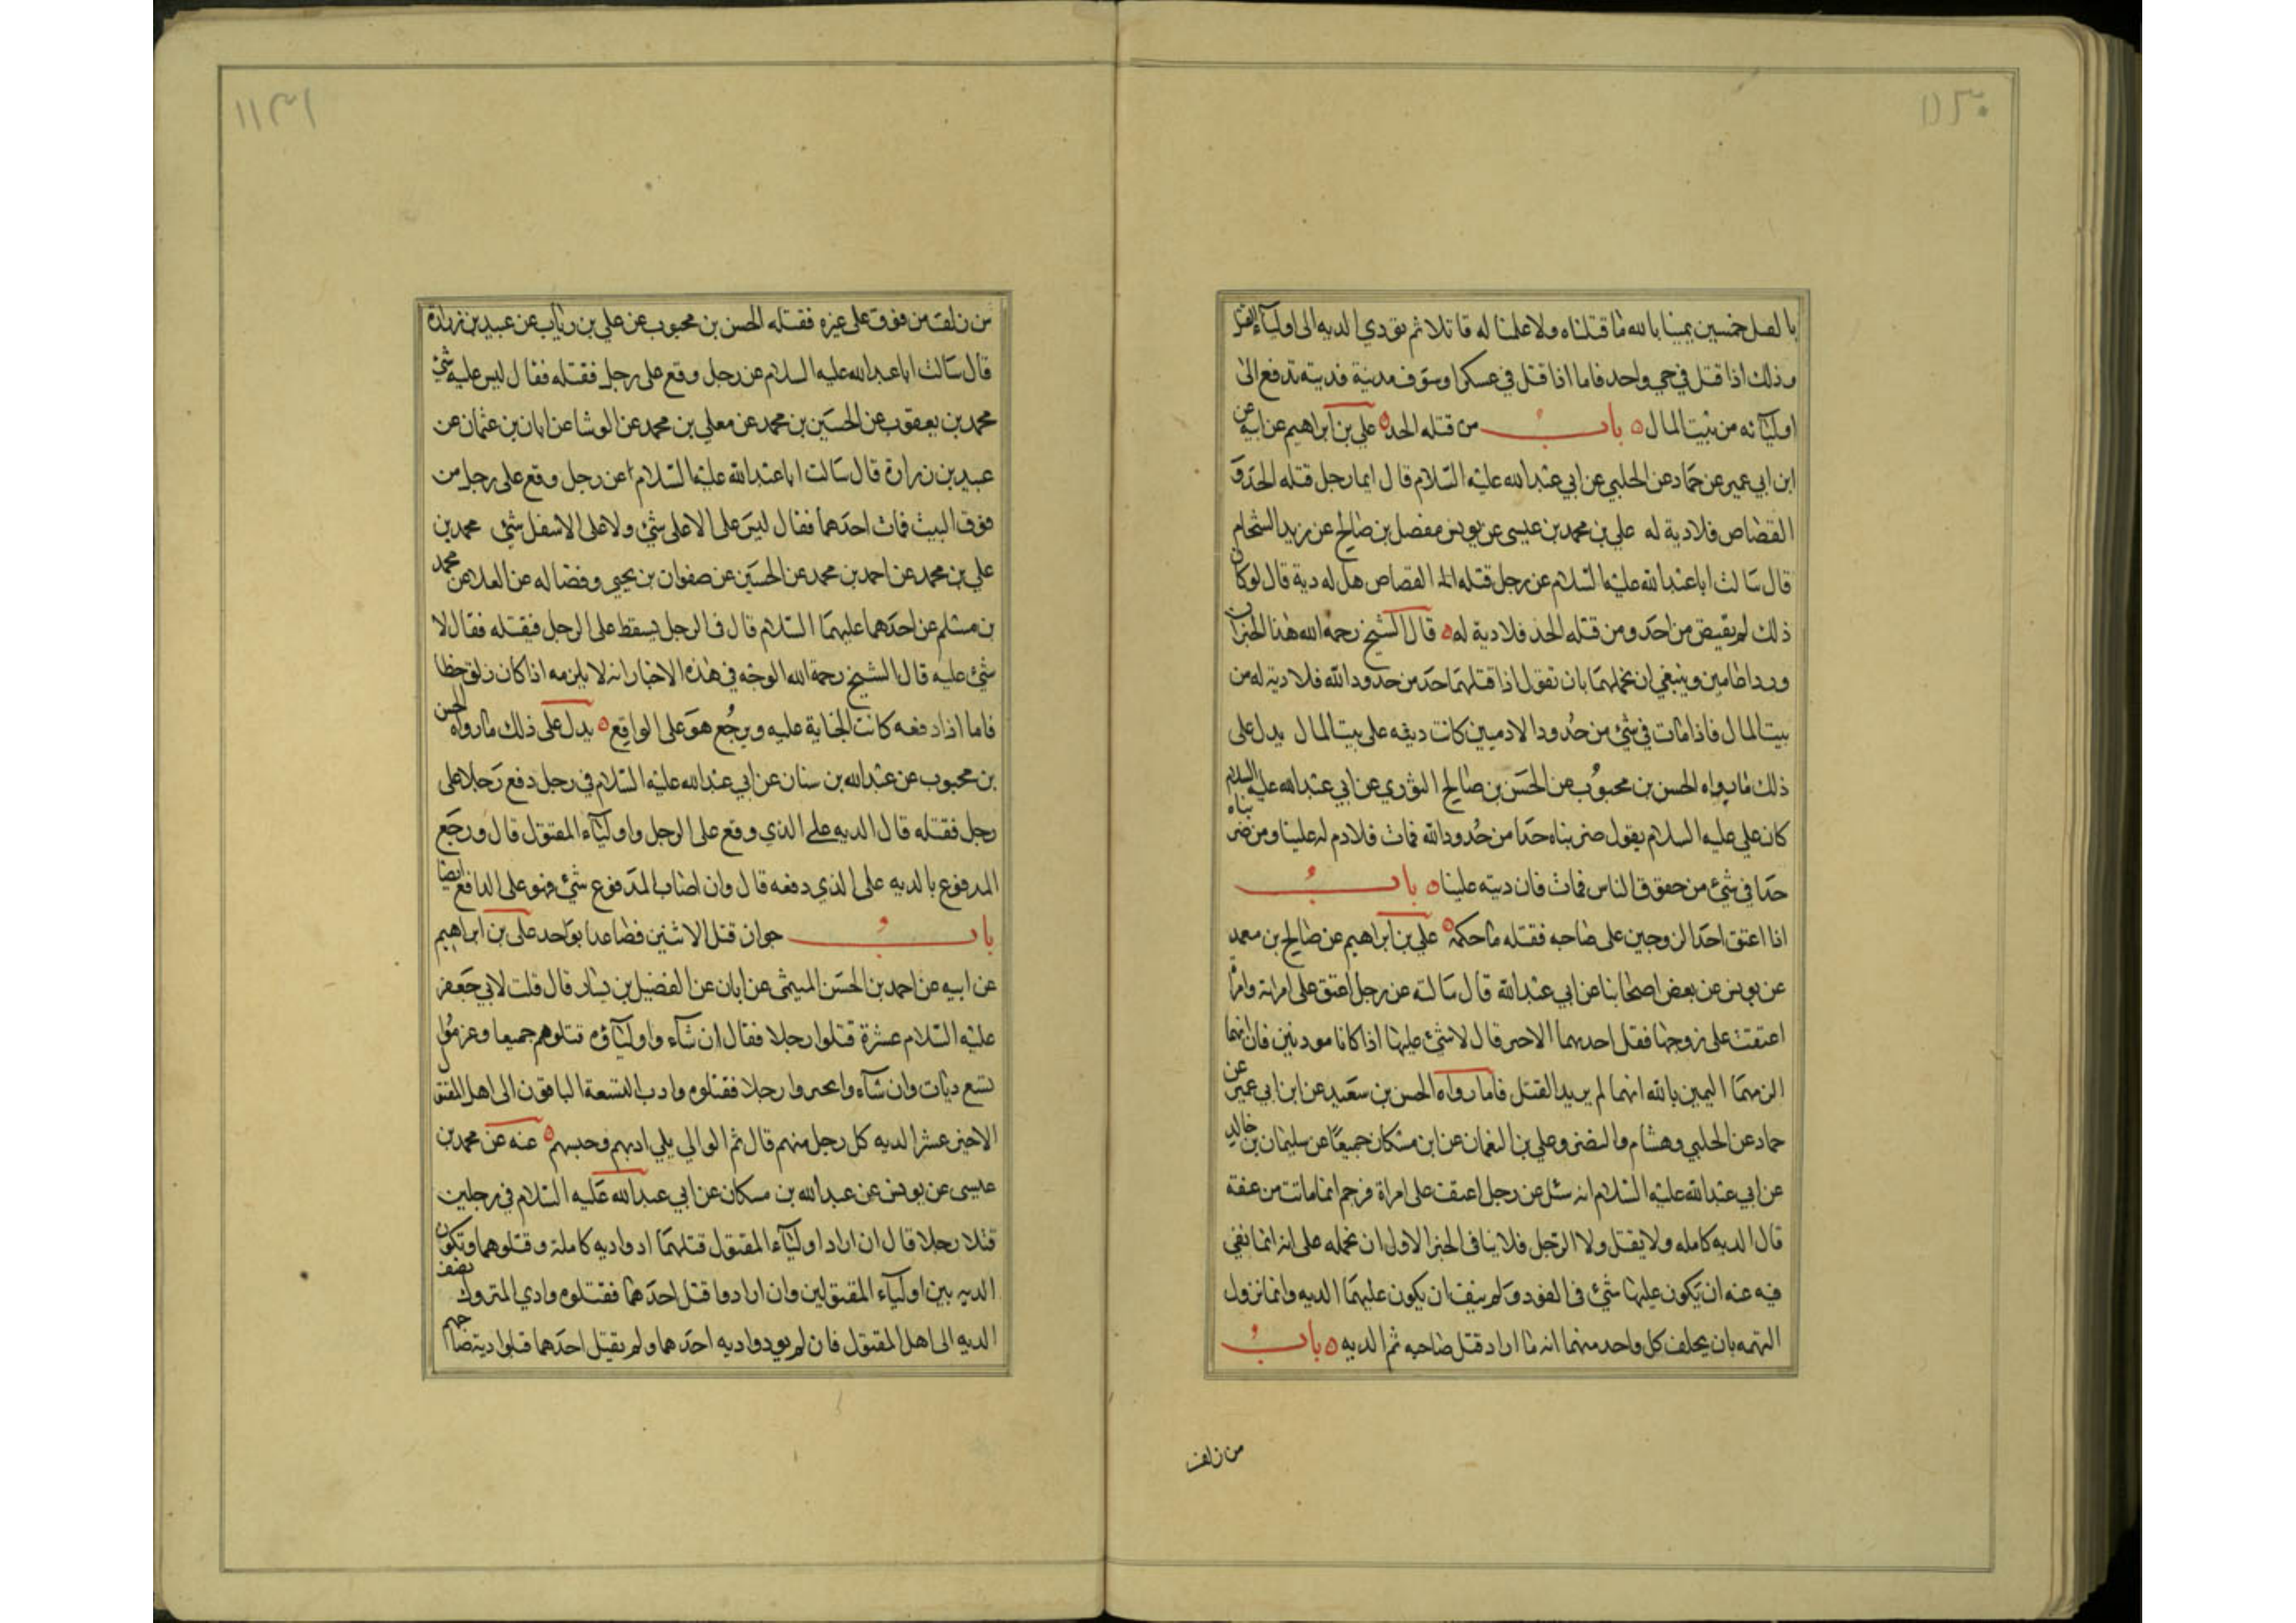 ١١٣٠
بالفعل خمسين يمينا بالله ما قتلناه ولا علمنا له قاتلا ثم تودي الديه الى اولياء
وذلك اذا قتل في حي واحد فاما اذا قتل في عسكر او سوق مدينة فديته تدفع الى
اوليائه من بيت المال باب من قتله الحد علي بن ابراهيم عن ابيه عن
ابن ابي عمير عن حماد عن الحلبي عن ابي عبد الله عليه السلام قال ايما رجل قتله الحد و
القصاص فلا دية له علي بن محمد بن عيسى عن يونس مفضل بن صالح عن زيد الشحام
قال سالت ابا عبد الله عليه السلام عن رجل قتله القصاص هل له دية قال لو كان
ذلك لم يقتص من احد ومن قتله الحد فلا دية له قال الشيخ رحمه الله هذا الخبران
وردا عامين وينبغي ان نحملهما بان نقول اذا قتلهما حد من حدود الله فلا دية له من
بيت المال فاذا مات في شئ من حدود الادميين كانت ديته على بيت المال يدل على
ذلك ما رواه الحسن بن محبوب عن الحسن بن صالح الثوري عن ابي عبد الله عليه السلام
كان علي عليه السلام يقول من ضربناه حدا من حدود الله فمات فلا دم له علينا ومن ضربناه
حدا في شئ من حقوق الناس فمات فان ديته علينا باب
اذا اعنق احد الزوجين على صاحبه فقتله ما حكمه علي بن ابراهيم عن صالح بن سعيد
عن يونس عن بعض اصحابنا عن ابي عبد الله قال سالته عن رجل اعنق على امراته وامراة
اعنقت على زوجها فقتل احدهما الاخر قال لا شئ عليهما اذا كانا مودنين فان اتهما
الزمتهما اليمين بالله انهما لم يريدا القتل فاما رواه الحسن بن سعيد عن ابن ابي عمير عن
حماد عن الحلبي وهشام والنضر وعلي بن النعمان عن ابن مسكان جميعا عن سليمان بن خالد
عن ابي عبد الله عليه السلام انه سئل عن رجل اعنف على امراة فزعم انها ماتت من عنفه
قال الديه كامله ولا يقتل ولا الرجل فلا ينافى الخبر الاول ان نحمله على انه انما نفي
فيه عنه ان يكون عليهما شئ في القود ولم ينف ان يكون عليهما الديه وانما نزول
التهمه بان يحلف كل واحد منهما انه ما اراد قتل صاحبه ثم الديه باب
من زلق
١١٣١
من زلق من فوق على غيره فقتله الحسن بن محبوب عن علي بن رئاب عن عبيد بن زرارة
قال سالت ابا عبد الله عليه السلام عن رجل وقع على رجل فقتله فقال ليس عليه شئ
محمد بن يعقوب عن الحسين بن محمد عن معلي بن محمد عن الوشا عن ابان بن عثمان عن
عبيد بن زرارة قال سالت ابا عبد الله عليه السلام عن رجل وقع على رجل من
فوق البيت فمات احدهما فقال ليس على الاعلى شئ ولا على الاسفل شئ محمد بن
علي بن محمد عن احمد بن محمد عن الحسين عن صفوان بن يحيى وفضاله عن العلا عن محمد
بن مسلم عن احدهما عليهما السلام قال في الرجل يسقط على الرجل فيقتله فقال لا
شئ عليه قال الشيخ رحمة الله الوجه في هذه الاخبار انه لا يلزمه اذا كان زلق خطا
فاما اذا دفعه كانت الجناية عليه ويرجع هو على الواقع يدل على ذلك ما رواه الحسن
بن محبوب عن عبد الله بن سنان عن ابي عبد الله عليه السلام في رجل دفع رجلا على
رجل فقتله قال الديه على الذي وقع على الرجل واولياء المقتول قال ورجع
المدفوع بالديه على الذي دفعه قال وان اصاب المدفوع شئ فهو على الدافع ايضا
باب جواز قتل الاثنين فصاعدا بواحد على بن ابراهيم
عن ابيه عن احمد بن الحسن الميثمى عن ابان عن الفضيل بن يسار قال قلت لابي جعفر
عليه السلام عشرة قتلوا رجلا فقال ان شاء واولياؤه قتلوهم جميعا وغرموا
تسع ديات وان شاء وا رجلا فقتلوه وادب التسعة الباقون الى اهل المقتول
الاخير عشر الديه كل رجل منهم قال ثم الوالي يلي ادبهم وحبسهم عنه عن محمد بن
عيسى عن يونس عن عبد الله بن مسكان عن ابي عبد الله عليه السلام في رجلين
قتلا رجلا قال ان اراد اولياء المقتول قتلهما ادوا ديه كاملة وقتلوهما وتكون
الديه بين اولياء المقتولين وان ارادوا قتل احدهما فقتلوه وادي المتروك نصف
الديه الى اهل المقتول فان لم يودوا ديه احدهما ولم يقتل احدهما قبلوا دية صاحبهم